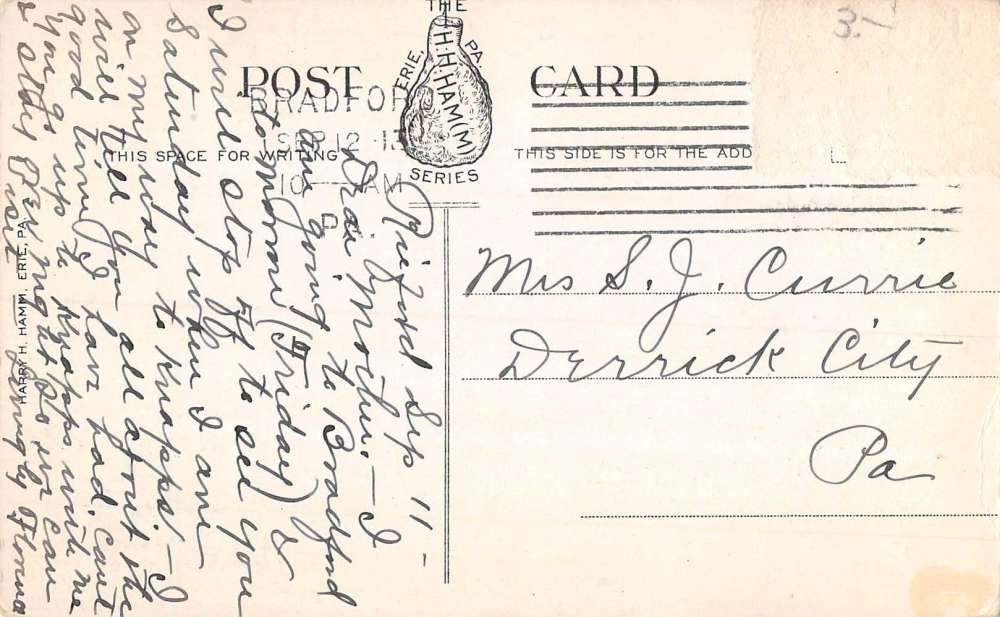 THE
H.H.HAM(M)
ERIE, PA.
SERIES
POST CARD
BRADFORD
SEP 12 13
10 — AM
PA.
3.-
THIS SPACE FOR WRITING
THIS SIDE IS FOR THE ADD
Rixford Sep 11 -
Dear Mother. - I
am going to Bradford
tomorrow (Friday) &
I will stop off to see you
Saturday when I am
on my way to Knapps - I
will tell you all about the
good time I have had. Cant
you go up to Knapps with me
& stay over night So we can
visit Lovingly
Mrs S. J. Currie
Derrick City
Pa
HARRY H. HAMM, ERIE, PA.